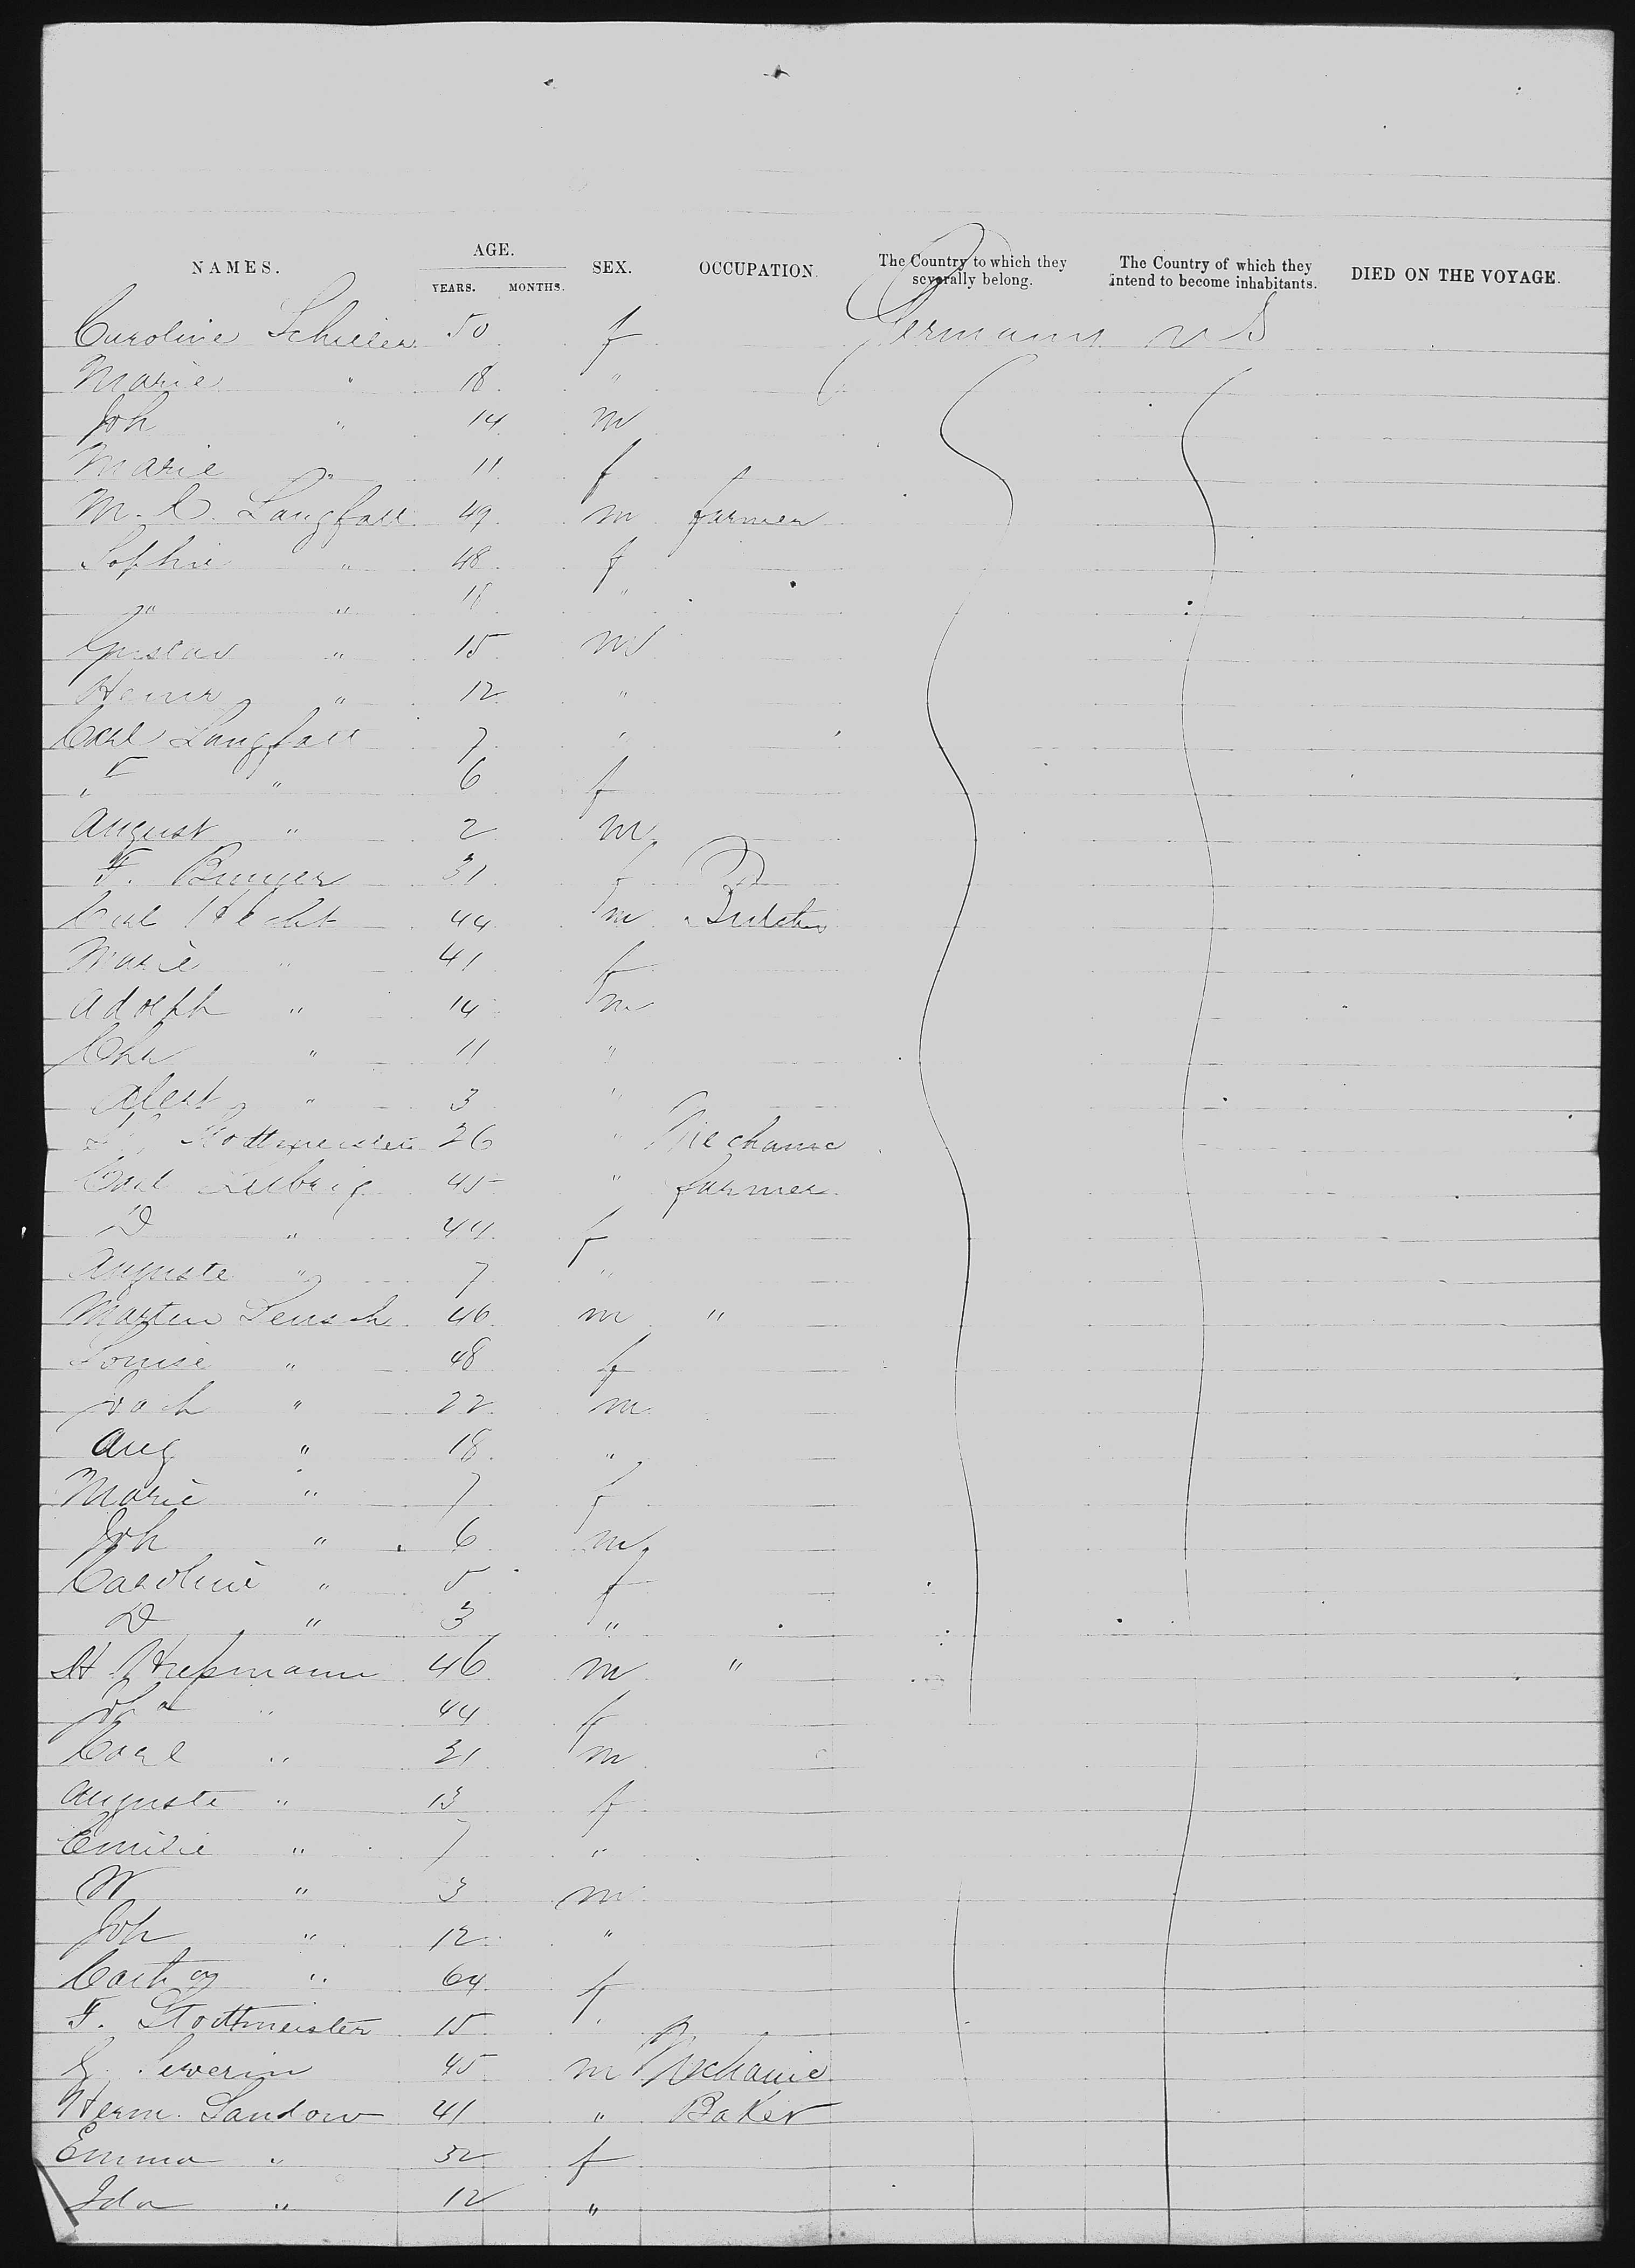 NAMES. AGE. YEARS. MONTHS. SEX. OCCUPATION. The Country to which they severally belong. The Country of which they intend to become inhabitants. DIED ON THE VOYAGE.
Caroline 50 f Germany U S
Marie " 18 "
Joh " 14 m
Marie " 11 f
M. C. Langfall 49 m farmer
Sophie " 48 f
" " "
Gustav " 15 m
Heinr " 12 "
Carl Langfall 7 "
" " 6 f
August " 2 m
F. 31 f
Carl Hecht 44 m Butcher
Marie " 41 f
Adolph " 14 m
Cha " 11 "
Albert " 3 "
Stodtmeister 26 " Mechanic
Carl 45 " farmer
D " 44 f
Auguste " 7 "
Martin 46 m "
Louise " 48 f
Joch " 22 m
Aug " 18 "
Marie " 7 f
Joh " 6 m
Caroline " 5 f
D " 3 "
H 46 m "
Joh a " 44 f
Carl " 21 m
Auguste " 13 f
Emilie " 7 "
W " 3 m
Joh " 12 "
Cath " 64 f
F. Stodtmeister 15 "
Severin 45 m Mechanic
Herm. Sandow 41 " Baker
Emma " 32 f
Ida " 12 "